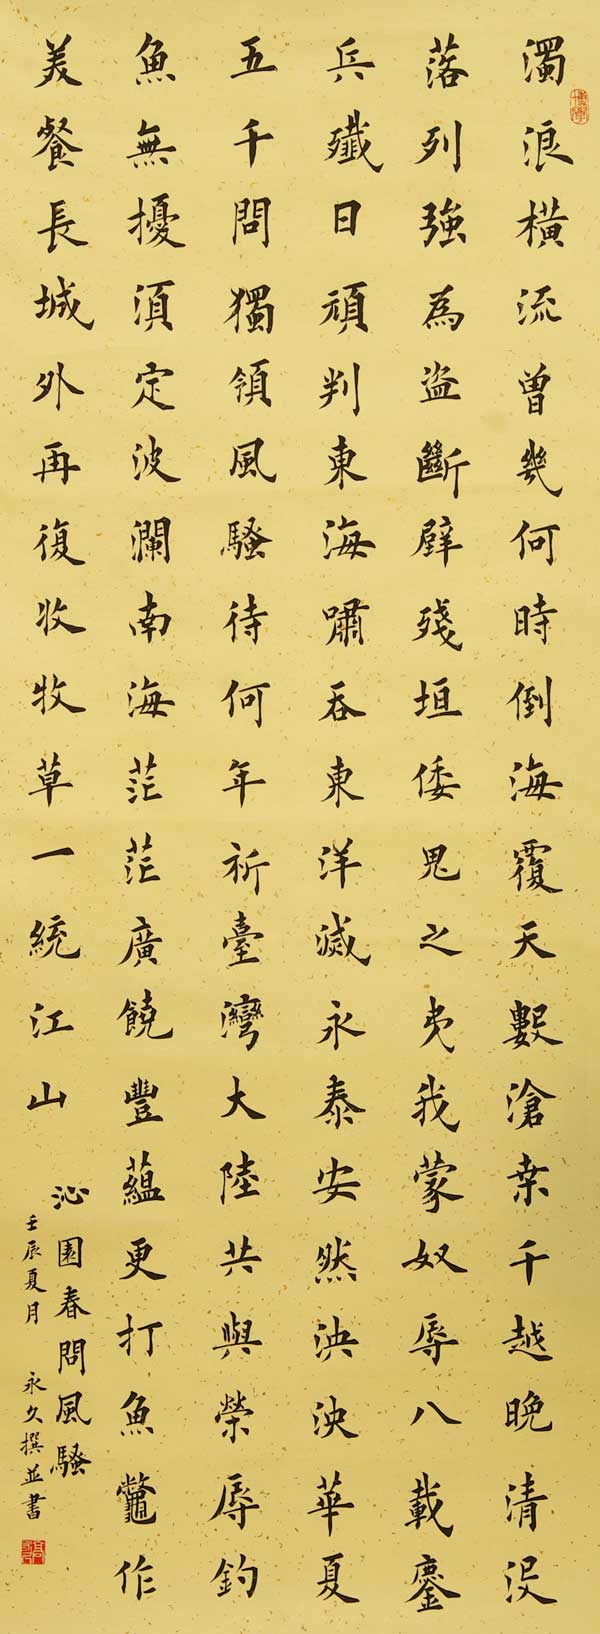 濁浪橫流曾幾何時倒海覆天數滄桒千越晚清沒
落列強為盜斷壁殘垣倭鬼之夷我蒙奴辱八載鏖
兵殲日頑判東海嘯吞東洋滅永泰安然泱泱華夏
五千問獨領風騷待何年祈臺灣大陸共與榮辱釣
魚無擾須定波瀾南海茫茫廣饒豐蘊更打魚鼈作
美餐長城外再復收牧草一統江山
沁園春問風騷
壬辰夏月 永久撰並書